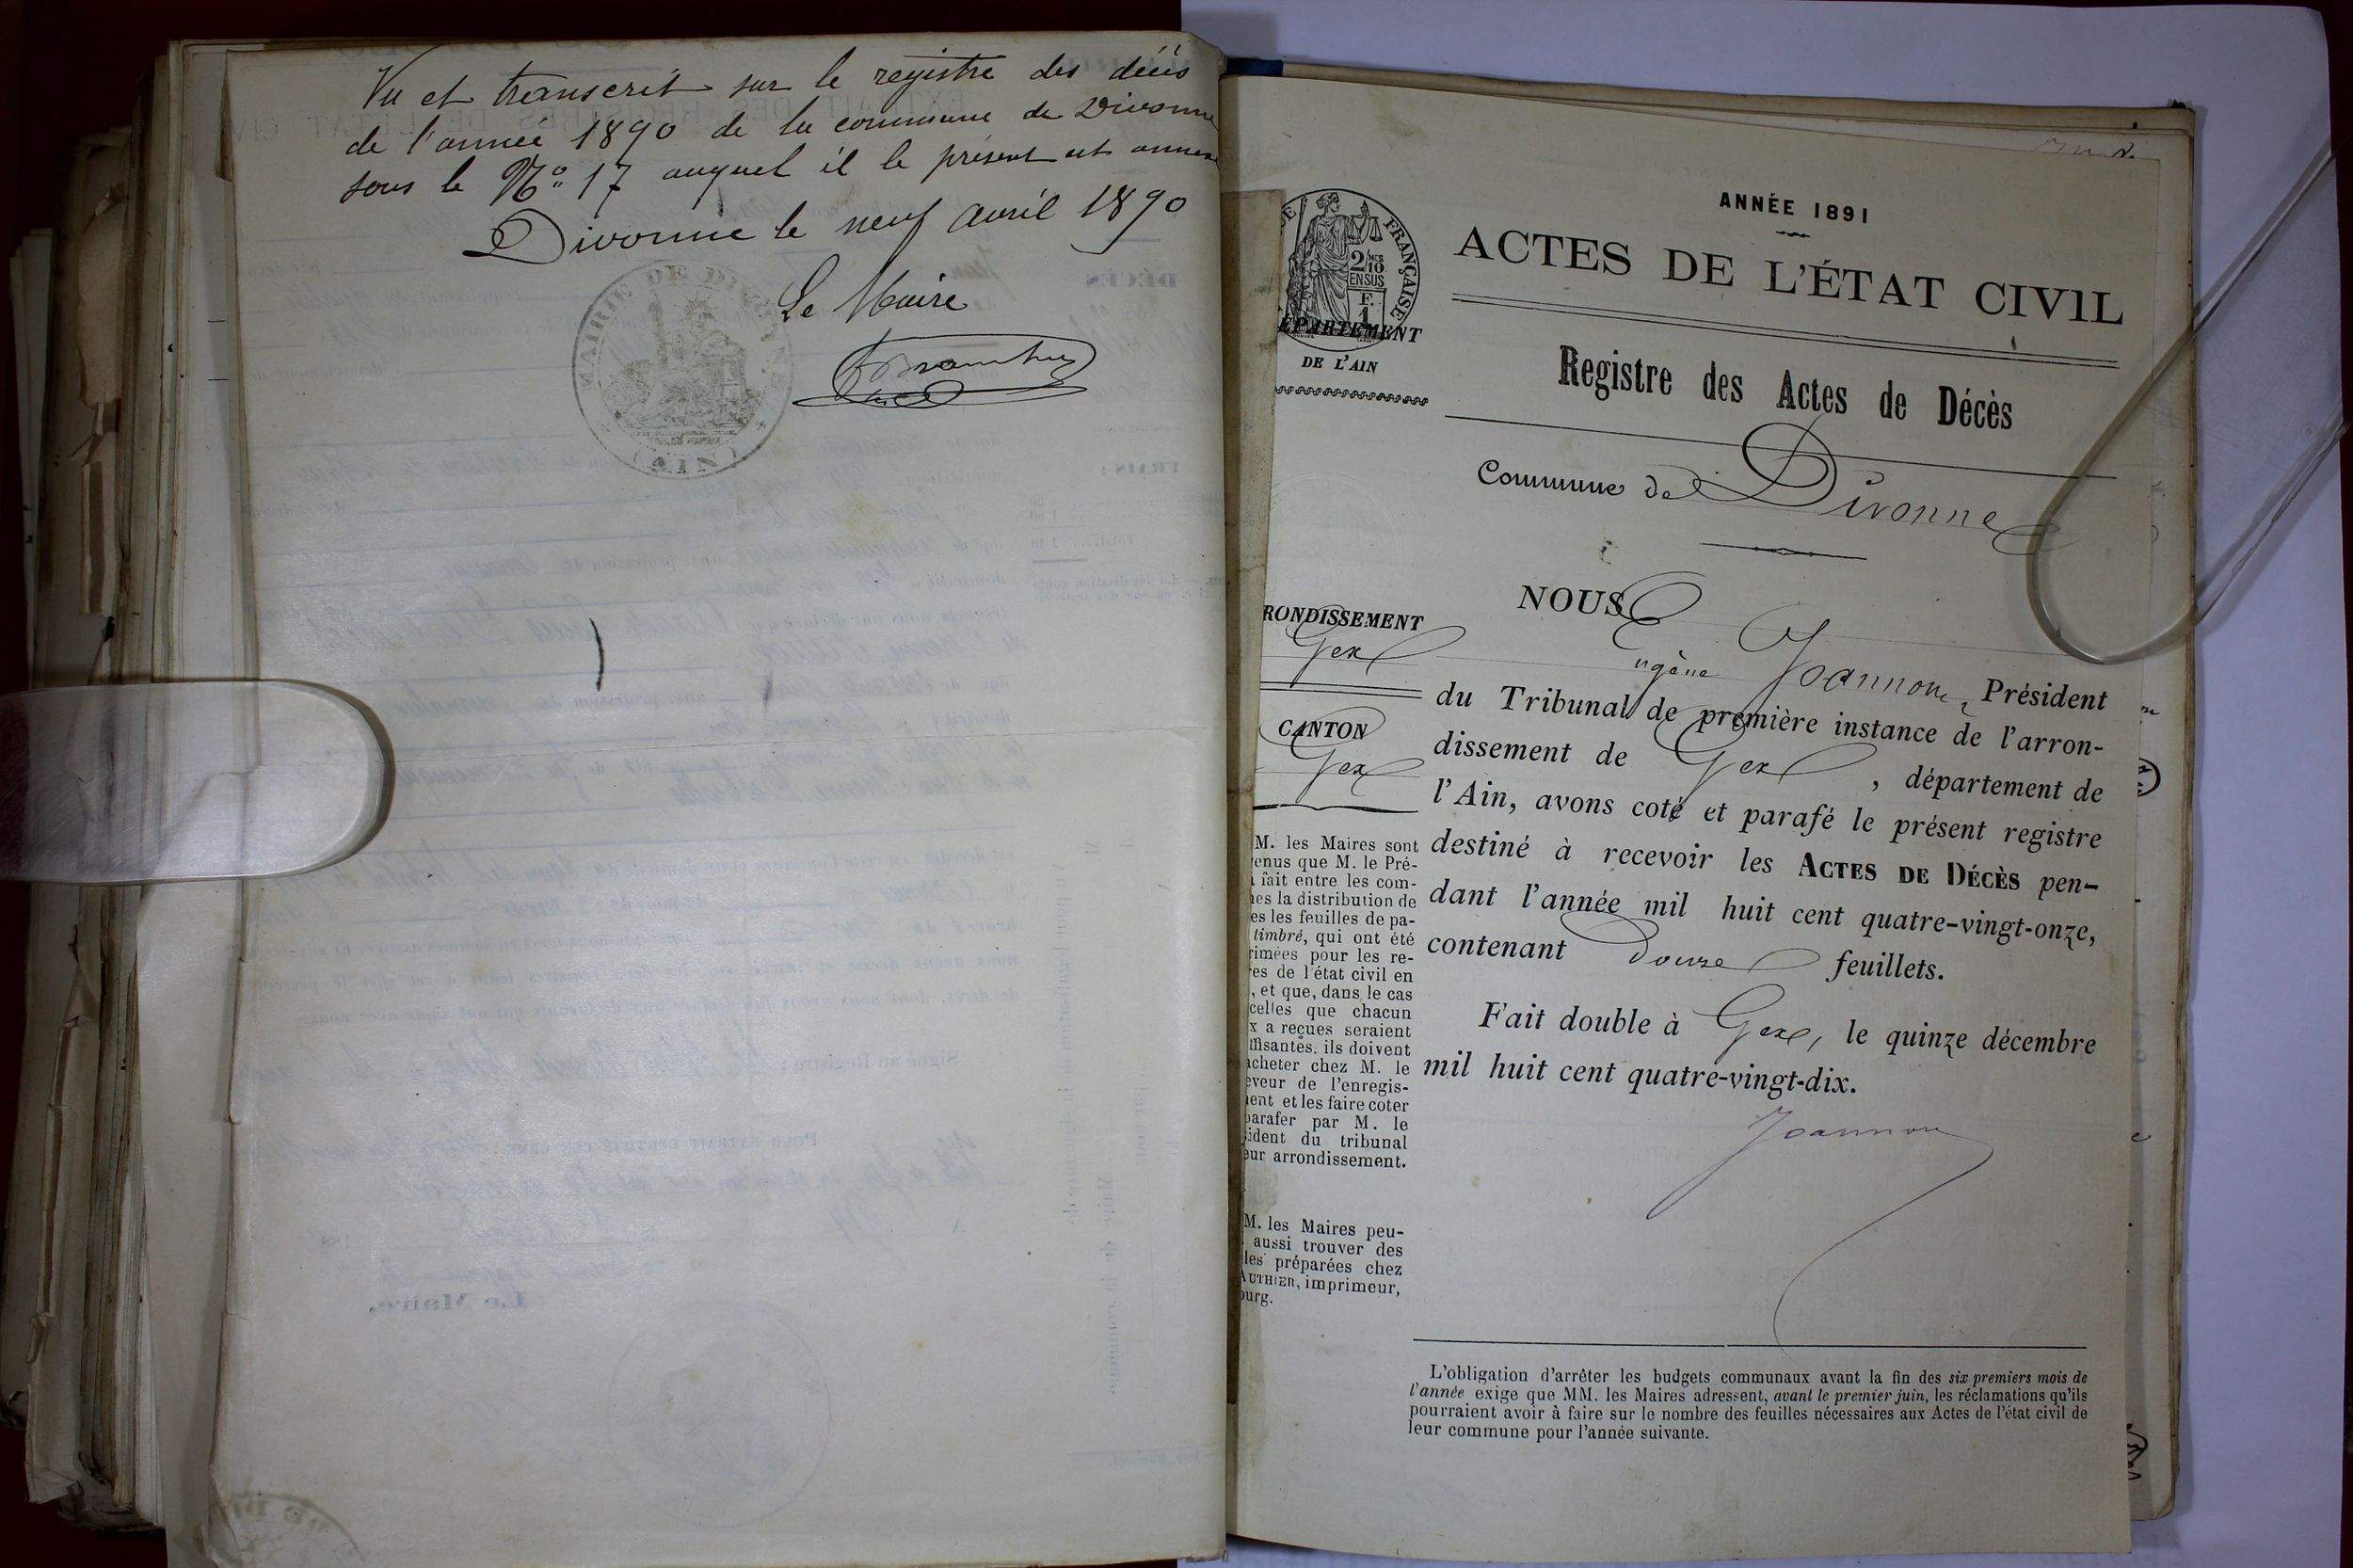 Vu et transcrit sur le registre des décès
de l'année 1890 de la commune de Divonne
sous le N° 17 auquel il le présent est annexé
Divonne le neuf avril 1890
Le Maire
MAIRIE DE DIVONNE
(AIN)
ANNÉE 1891
ACTES DE L'ÉTAT CIVIL
FRANÇAISE
2/10
EN SUS
F.
1
DÉPARTEMENT
DE L'AIN
Registre des Actes de Décès
Commune de Divonne
RONDISSEMENT
Gex
CANTON
Gex
M. les Maires sont
venus que M. le Pré-
a fait entre les com-
nes la distribution de
es les feuilles de pa-
timbré, qui ont été
rimées pour les re-
res de l'état civil en
, et que, dans le cas
celles que chacun
x a reçues seraient
ffisantes, ils doivent
acheter chez M. le
eveur de l'enregis-
ment et les faire coter
parafer par M. le
sident du tribunal
eur arrondissement.
M. les Maires peu-
aussi trouver des
les préparées chez
AUTHIER, imprimeur,
ourg.
NOUS
Eugène Joannon, Président
du Tribunal de première instance de l'arron-
dissement de Gex, département de
l'Ain, avons coté et parafé le présent registre
destiné à recevoir les ACTES DE DÉCÈS pen-
dant l'année mil huit cent quatre-vingt-onze,
contenant douze feuillets.
Fait double à Gex, le quinze décembre
mil huit cent quatre-vingt-dix.
Joannon
L'obligation d'arrêter les budgets communaux avant la fin des six premiers mois de
l'année exige que MM. les Maires adressent, avant le premier juin, les réclamations qu'ils
pourraient avoir à faire sur le nombre des feuilles nécessaires aux Actes de l'état civil de
leur commune pour l'année suivante.